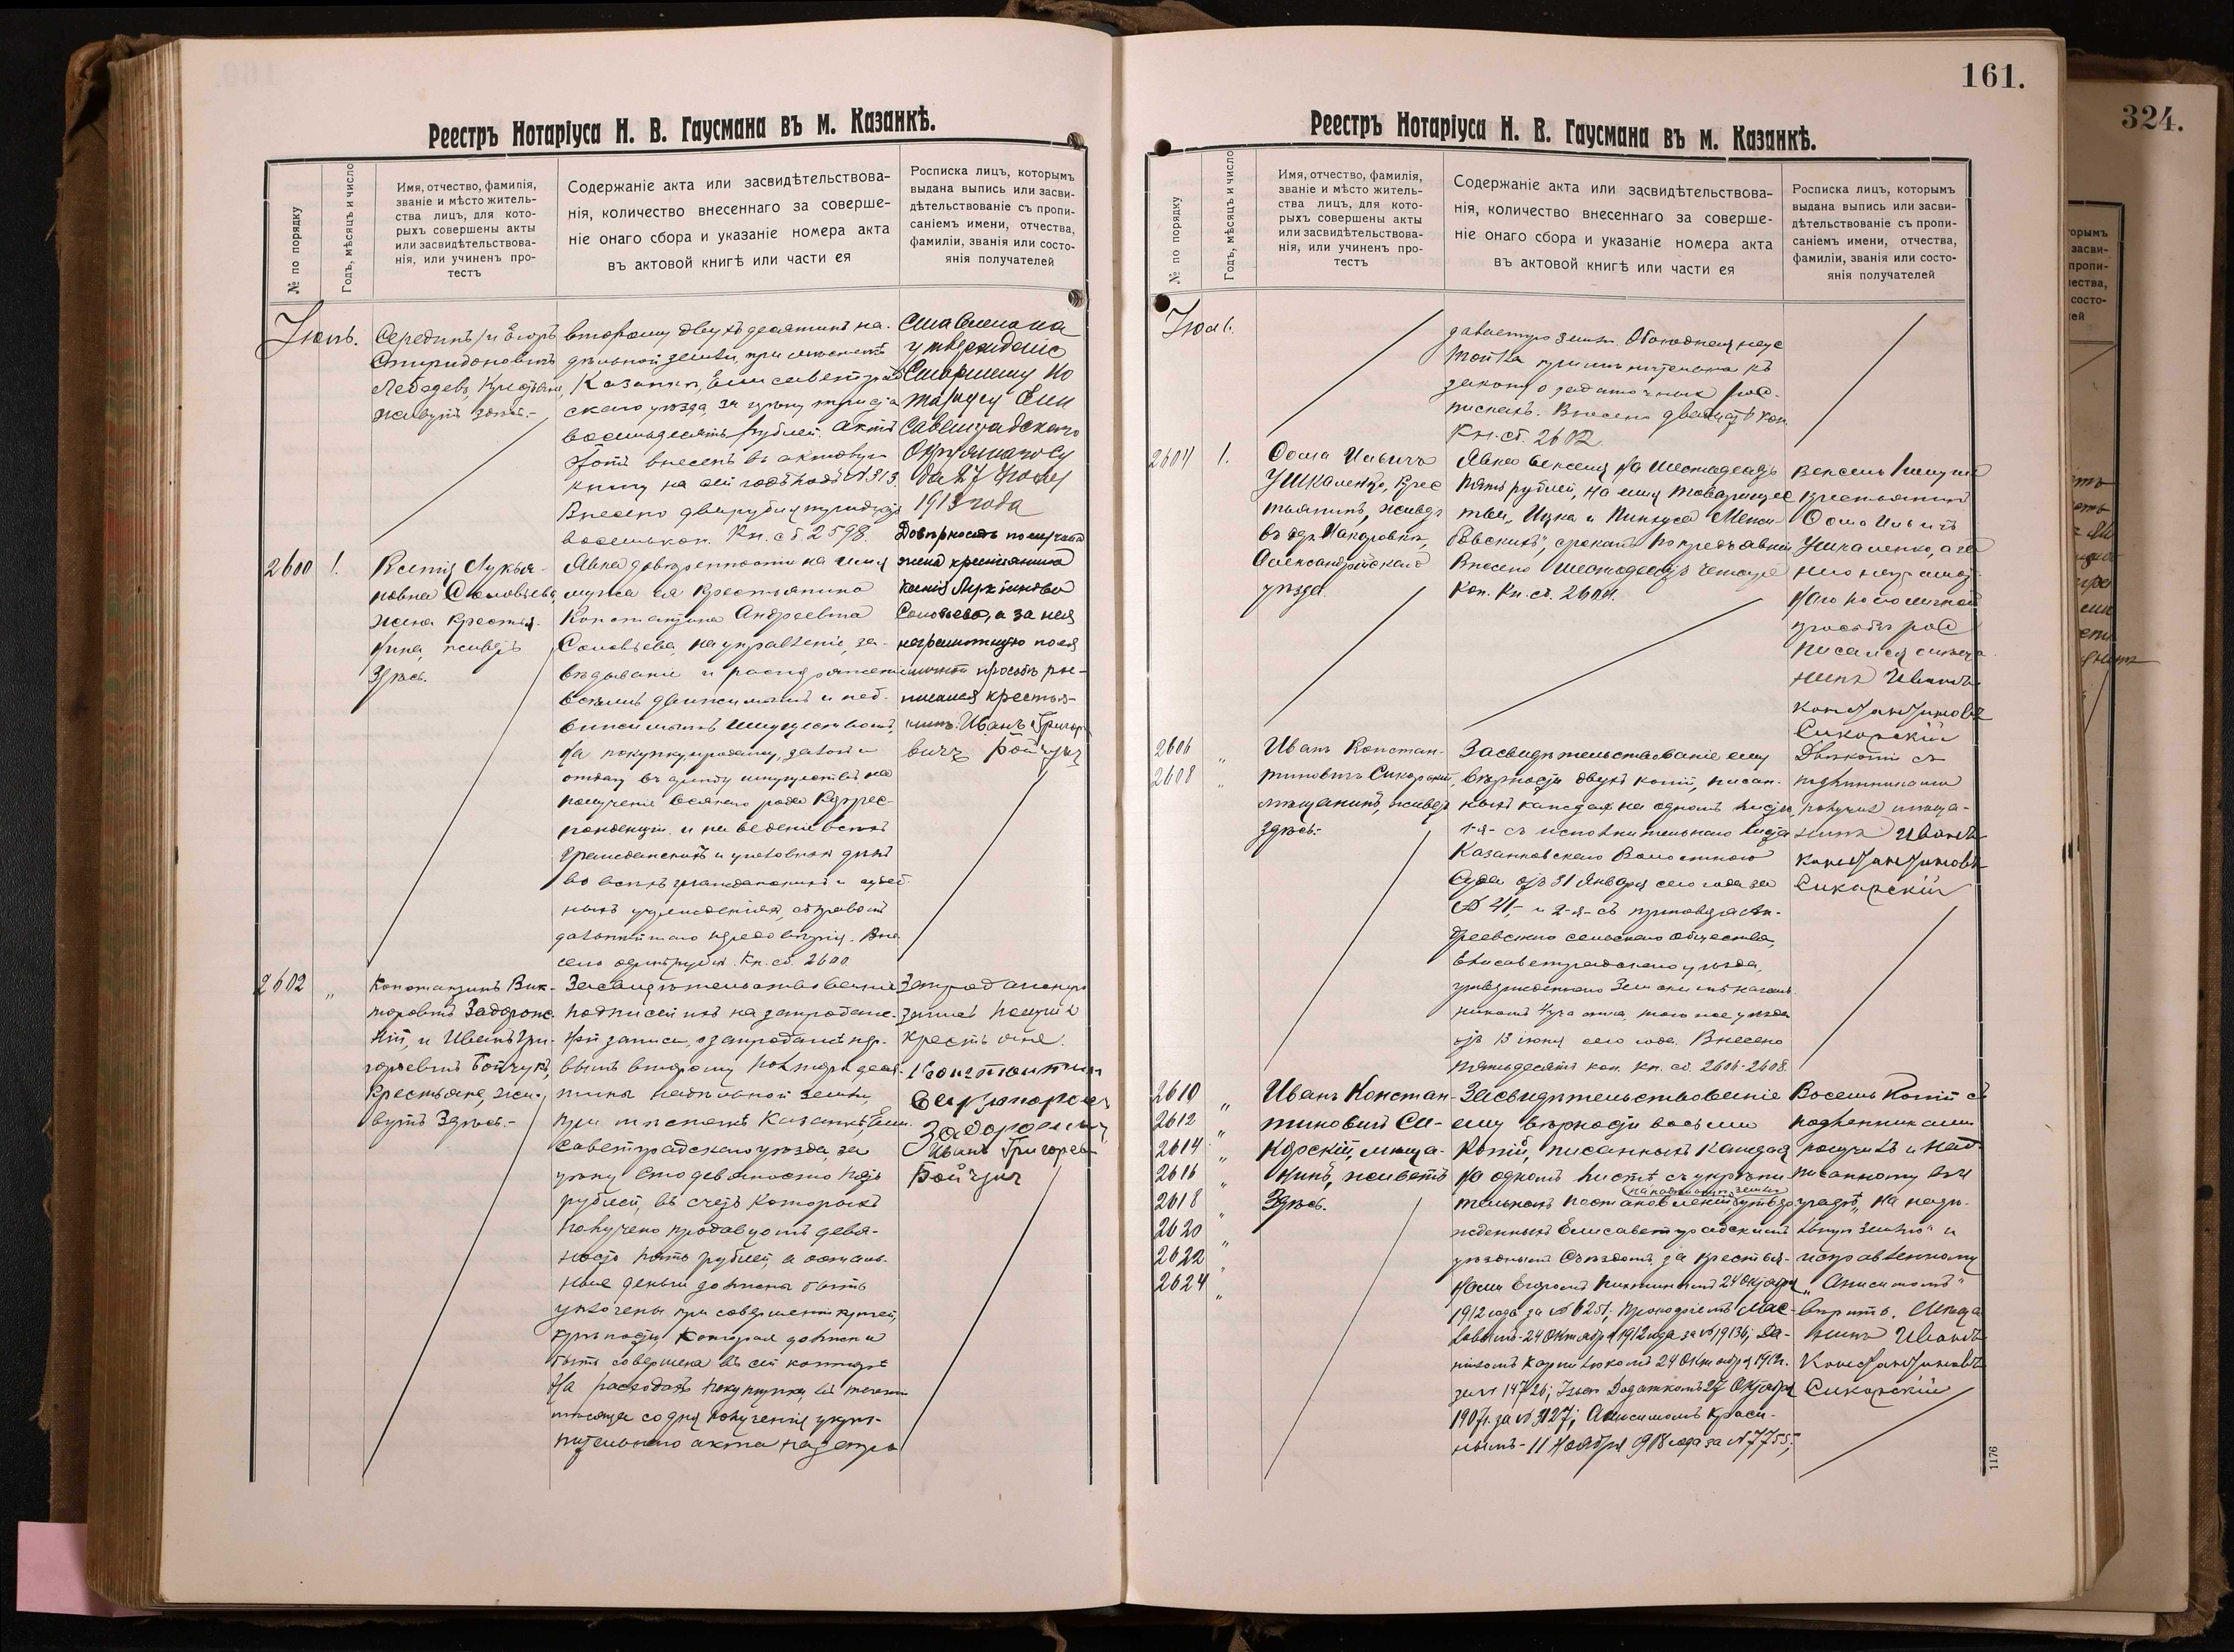 Реестръ Нотаріуса Н. В. Гаусмана въ м. Казанкѣ.
№ по порядку
Годъ, мѣсяцъ и число
Имя, отчество, фамилія,
званіе и мѣсто житель-
ства лицъ, для кото-
рыхъ совершены акты
или засвидѣтельствова-
нія, или учиненъ про-
тестъ
Содержаніе акта или засвидѣтельствова-
нія, количество внесеннаго за соверше-
ніе онаго сбора и указаніе номера акта
въ актовой книгѣ или части ея
Росписка лицъ, которымъ
выдана выпись или засви-
дѣтельствованіе съ пропи-
саніемъ имени, отчества,
фамиліи, званія или состо-
янія получателей
Середин и Егоръ
Спиридоновичъ
Лебедевъ, крестьяне,
живутъ здѣсь.-
второму двухъ десятинъ на-
дѣльной земли, при мѣстечкѣ
Казанкѣ, Елисаветград
скаго уѣзда, за цѣну триста
восемьдесятъ рублей. Актъ
этотъ внесенъ въ актовую
книгу на сей годъ подъ № 313
Внесено два рубля тридцать
восемь коп. Кн. сб. 2598.
утвержденіе
Старшему Но
таріусу Ели
саветградскаго
Окружнаго Су
да 27 Іюля
1913 года
2600
1.
Ксенія Лукья-
новна Соловьева,
жена крестья-
нина, живетъ
здѣсь.
Явка довѣренности на имя
мужа ея крестьянина
Константина Андреевича
Соловьева, на управленіе, за-
вѣдываніе и распоряжен
всѣмъ движимымъ и нед-
вижимымъ имуществомъ,
на покупку, продажу, залогъ и
отдачу въ аренду имущества на
полученіе всякаго рода коррес-
понденціи и на веденіе всѣхъ
гражданскихъ и уголовныхъ дѣлъ
во всѣхъ гражданскихъ и судеб
ныхъ учрежденіяхъ, съ правомъ
дальнѣйшаго передовѣрія. Вне
сено одинъ рубль. Кн. сб. 2600
Довѣрность получила
жена крестьянина
Ксенія Лукьяновна
Соловьева, а за нея
неграмотную по ея
личной просьбѣ рос-
писался крестья-
нинъ Иванъ Григорь
вичъ Бойчукъ
2602
"
Константинъ Вик-
торовичъ Задорож-
ній, и Иванъ Гри-
горьевичъ Бойчукъ,
крестьяне, жи-
вутъ здѣсь.-
Засвидѣтельствованіе
подписей ихъ на запродаж-
ной записи, о запродажѣ пер-
вымъ второму полторы деся-
тины надѣльной земли,
при мѣстечкѣ Казанкѣ, Ели-
саветградскаго уѣзда, за
цѣну сто девяносто пять
рублей, въ счетъ которыхъ
получено продавцомъ девя-
носто пять рублей, а осталь-
ные деньги должны быть
уплочены при совершеніи купчей
крѣпости которая должна
быть совершена въ сей конторѣ
на расходахъ покупщика въ теченіи
мѣсяца со дня полученія укрѣ-
пительнаго акта на
Запродажную
запись получилъ
крестьяне.
Константин
Викторович
Задорожный
Иванъ Григорьев
Бойчукъ
161.
Реестръ Нотаріуса Н. В. Гаусмана въ м. Казанкѣ.
№ по порядку
Годъ, мѣсяцъ и число
Имя, отчество, фамилія,
званіе и мѣсто житель-
ства лицъ, для кото-
рыхъ совершены акты
или засвидѣтельствова-
нія, или учиненъ про-
тестъ
Содержаніе акта или засвидѣтельствова-
нія, количество внесеннаго за соверше-
ніе онаго сбора и указаніе номера акта
въ актовой книгѣ или части ея
Росписка лицъ, которымъ
выдана выпись или засви-
дѣтельствованіе съ пропи-
саніемъ имени, отчества,
фамиліи, званія или состо-
янія получателей
даваемую землю. Обоюдная неус
тойка примѣнительно къ
закону о задаточныхъ рос-
пискахъ. Внесено двадцать коп.
Кн. сб. 2602.
2604
1.
Фома Ильичъ
Ушкаленко, крес
тьянинъ, живетъ
въ дер.
Александрійскаго
уѣзда.
Явка векселя на шестьдесятъ
пять рублей, на имя товарищес
тва „Ицка и Пинхуса
, срокомъ по предъявленіи
Внесено шестьдесятъ четыре
коп. Кн. сб. 2604.
Вексель получилъ
крестьянинъ
Фома Ильичъ
Ушкаленко, а за
него неграмот
наго по его личной
просьбѣ рос
писался мѣща
нинъ Иванъ
Константиновъ
Сикорскій
2606
2608
"
"
Иванъ Констан-
тиновичъ Сикорскій,
мѣщанинъ, живетъ
здѣсь.-
Засвидѣтельствованіе ему
вѣрности двухъ копій, писан-
ныхъ каждая на одномъ листѣ,
1-я- съ исполнительнаго листа
Казанковскаго Волостного
Суда отъ 31 Января сего года за
№ 41,- и 2-я- съ приговора Ан-
дреевскаго сельскаго общества,
Елисаветградскаго уѣзда,
утвержденнаго Земскимъ началь-
никомъ 4 уч-стка, того же уѣзда
отъ 13 іюня сего года. Внесено
пятьдесятъ коп. Кн. сб. 2606-2608.
Двѣ копіи съ
подлинниками
получилъ мѣща-
нинъ Иванъ
Константиновъ
Сикорскій
2610
2612
2614
2616
2618
2620
2622
2624
Иванъ Констан-
тиновичъ Си-
корскій, мѣща-
нинъ, живетъ
здѣсь.
Засвидѣтельствованіе
ему вѣрности восьми
копій, писанныхъ каждая
на одномъ листѣ съ укрѣпи-
на надѣльную землю
тельныхъ постановленій утвер-
жденныхъ Елисаветградскимъ
уѣзднымъ Съѣздомъ, за крестья-
нами Егоромъ Никитинымъ 24 Октября
1912 года за № 6251; Прокофіемъ Мас-
ловымъ- 24 Октября 1912 года за № 19136; Да-
ниломъ Карпилюкомъ 24 Октября 1912 г.
за № 14726; Додаткомъ 27 Октября
1907 г. за № 3127; Анисимомъ Краси-
нымъ- 11 Ноября 1908 года за № 7755;
Восемь копій съ
подлинниками
получилъ и над-
писанному въ 4
градѣ, „на надѣ-
льную землю" и
исправленному
„Анисимомъ"
вѣрить. Мѣща
нинъ Иванъ
Константиновъ
Сикорскій
1176
324.